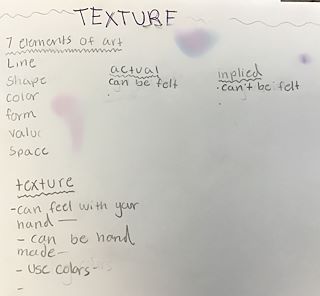 TEXTURE
7 elements of art
Line
Shape
color
form
value
Space
actual
can be felt
implied
· can't be felt
texture
- can feel with your
hand —
- can be hand
made -
- use colors -
-